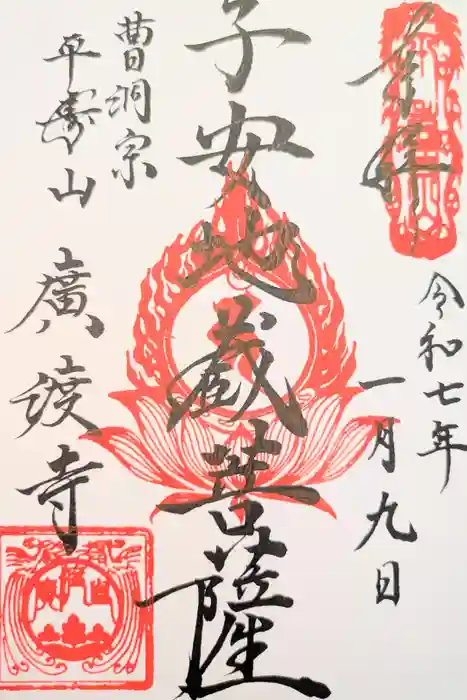 奉拝
令和七年
一月九日
子安地蔵菩薩
曹洞宗
平壽山
廣渡寺